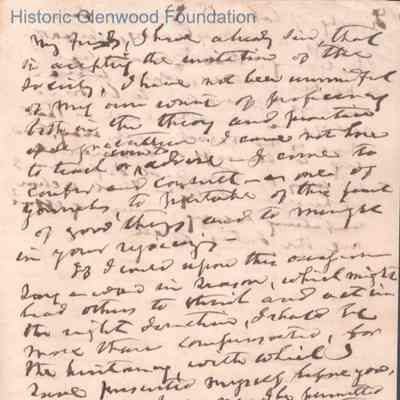 Historic Glenwood Foundation
My friends, I have already said, that
in accepting the invitation of the
Society, I have not been unmindful
of my own want of proficiency
both in the theory and practice
of agriculture. I came not here
to teach or advise - I come to
confer and consult - as one of
yourselves to partake of this feast
of good things, and to mingle
in your rejoicing. -
If I could upon this occasion
say a word in season, which might
lead others to think and act in
the right direction, I should be
more than compensated, for
the hesitancy, with which I
have presented myself before you.
be permitted